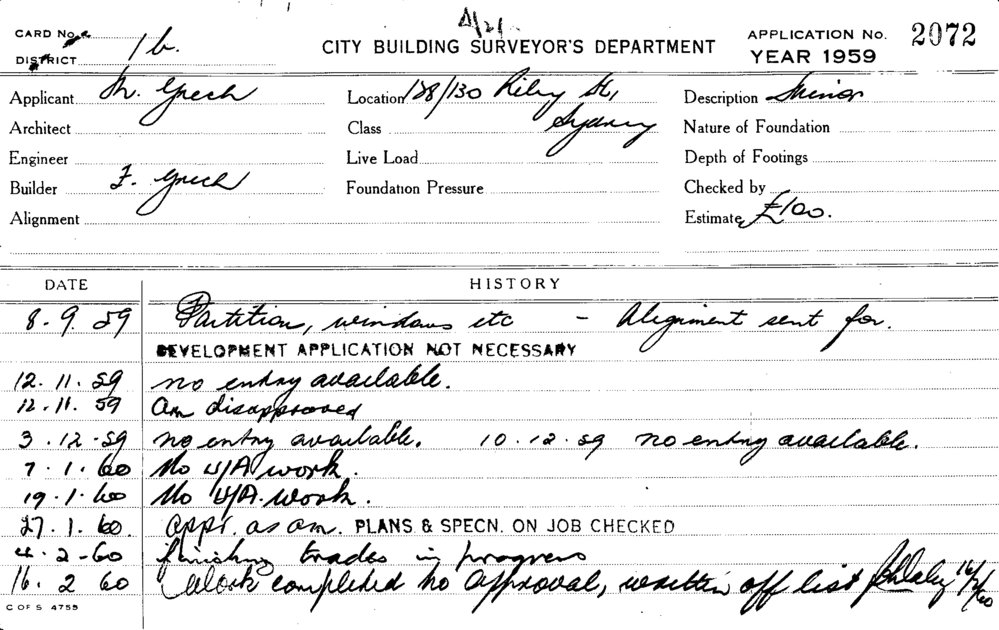 CARD No.
DISTRICT 1b.
CITY BUILDING SURVEYOR'S DEPARTMENT
APPLICATION No. 2072
YEAR 1959
Applicant M. Grech
Location 128/130 Riley St,
Sydney
Description Minor
Architect
Class
Nature of Foundation
Engineer
Live Load
Depth of Footings
Builder F. Grech
Foundation Pressure
Checked by
Alignment
Estimate £100.
DATE HISTORY
8.9.59 Partition, windows etc - Alignment sent for.
DEVELOPMENT APPLICATION NOT NECESSARY
12.11.59 no entry available.
12.11.59 Am disapproved
3.12.59 no entry available. 10.12.59 no entry available.
7.1.60 No U/A work.
19.1.60 No U/A work.
27.1.60 appr. as am. PLANS & SPECN. ON JOB CHECKED
4.2.60 finishing trades in progress
16.2 60 Work completed no approval, written off list 16/2/60
C OF S 4755